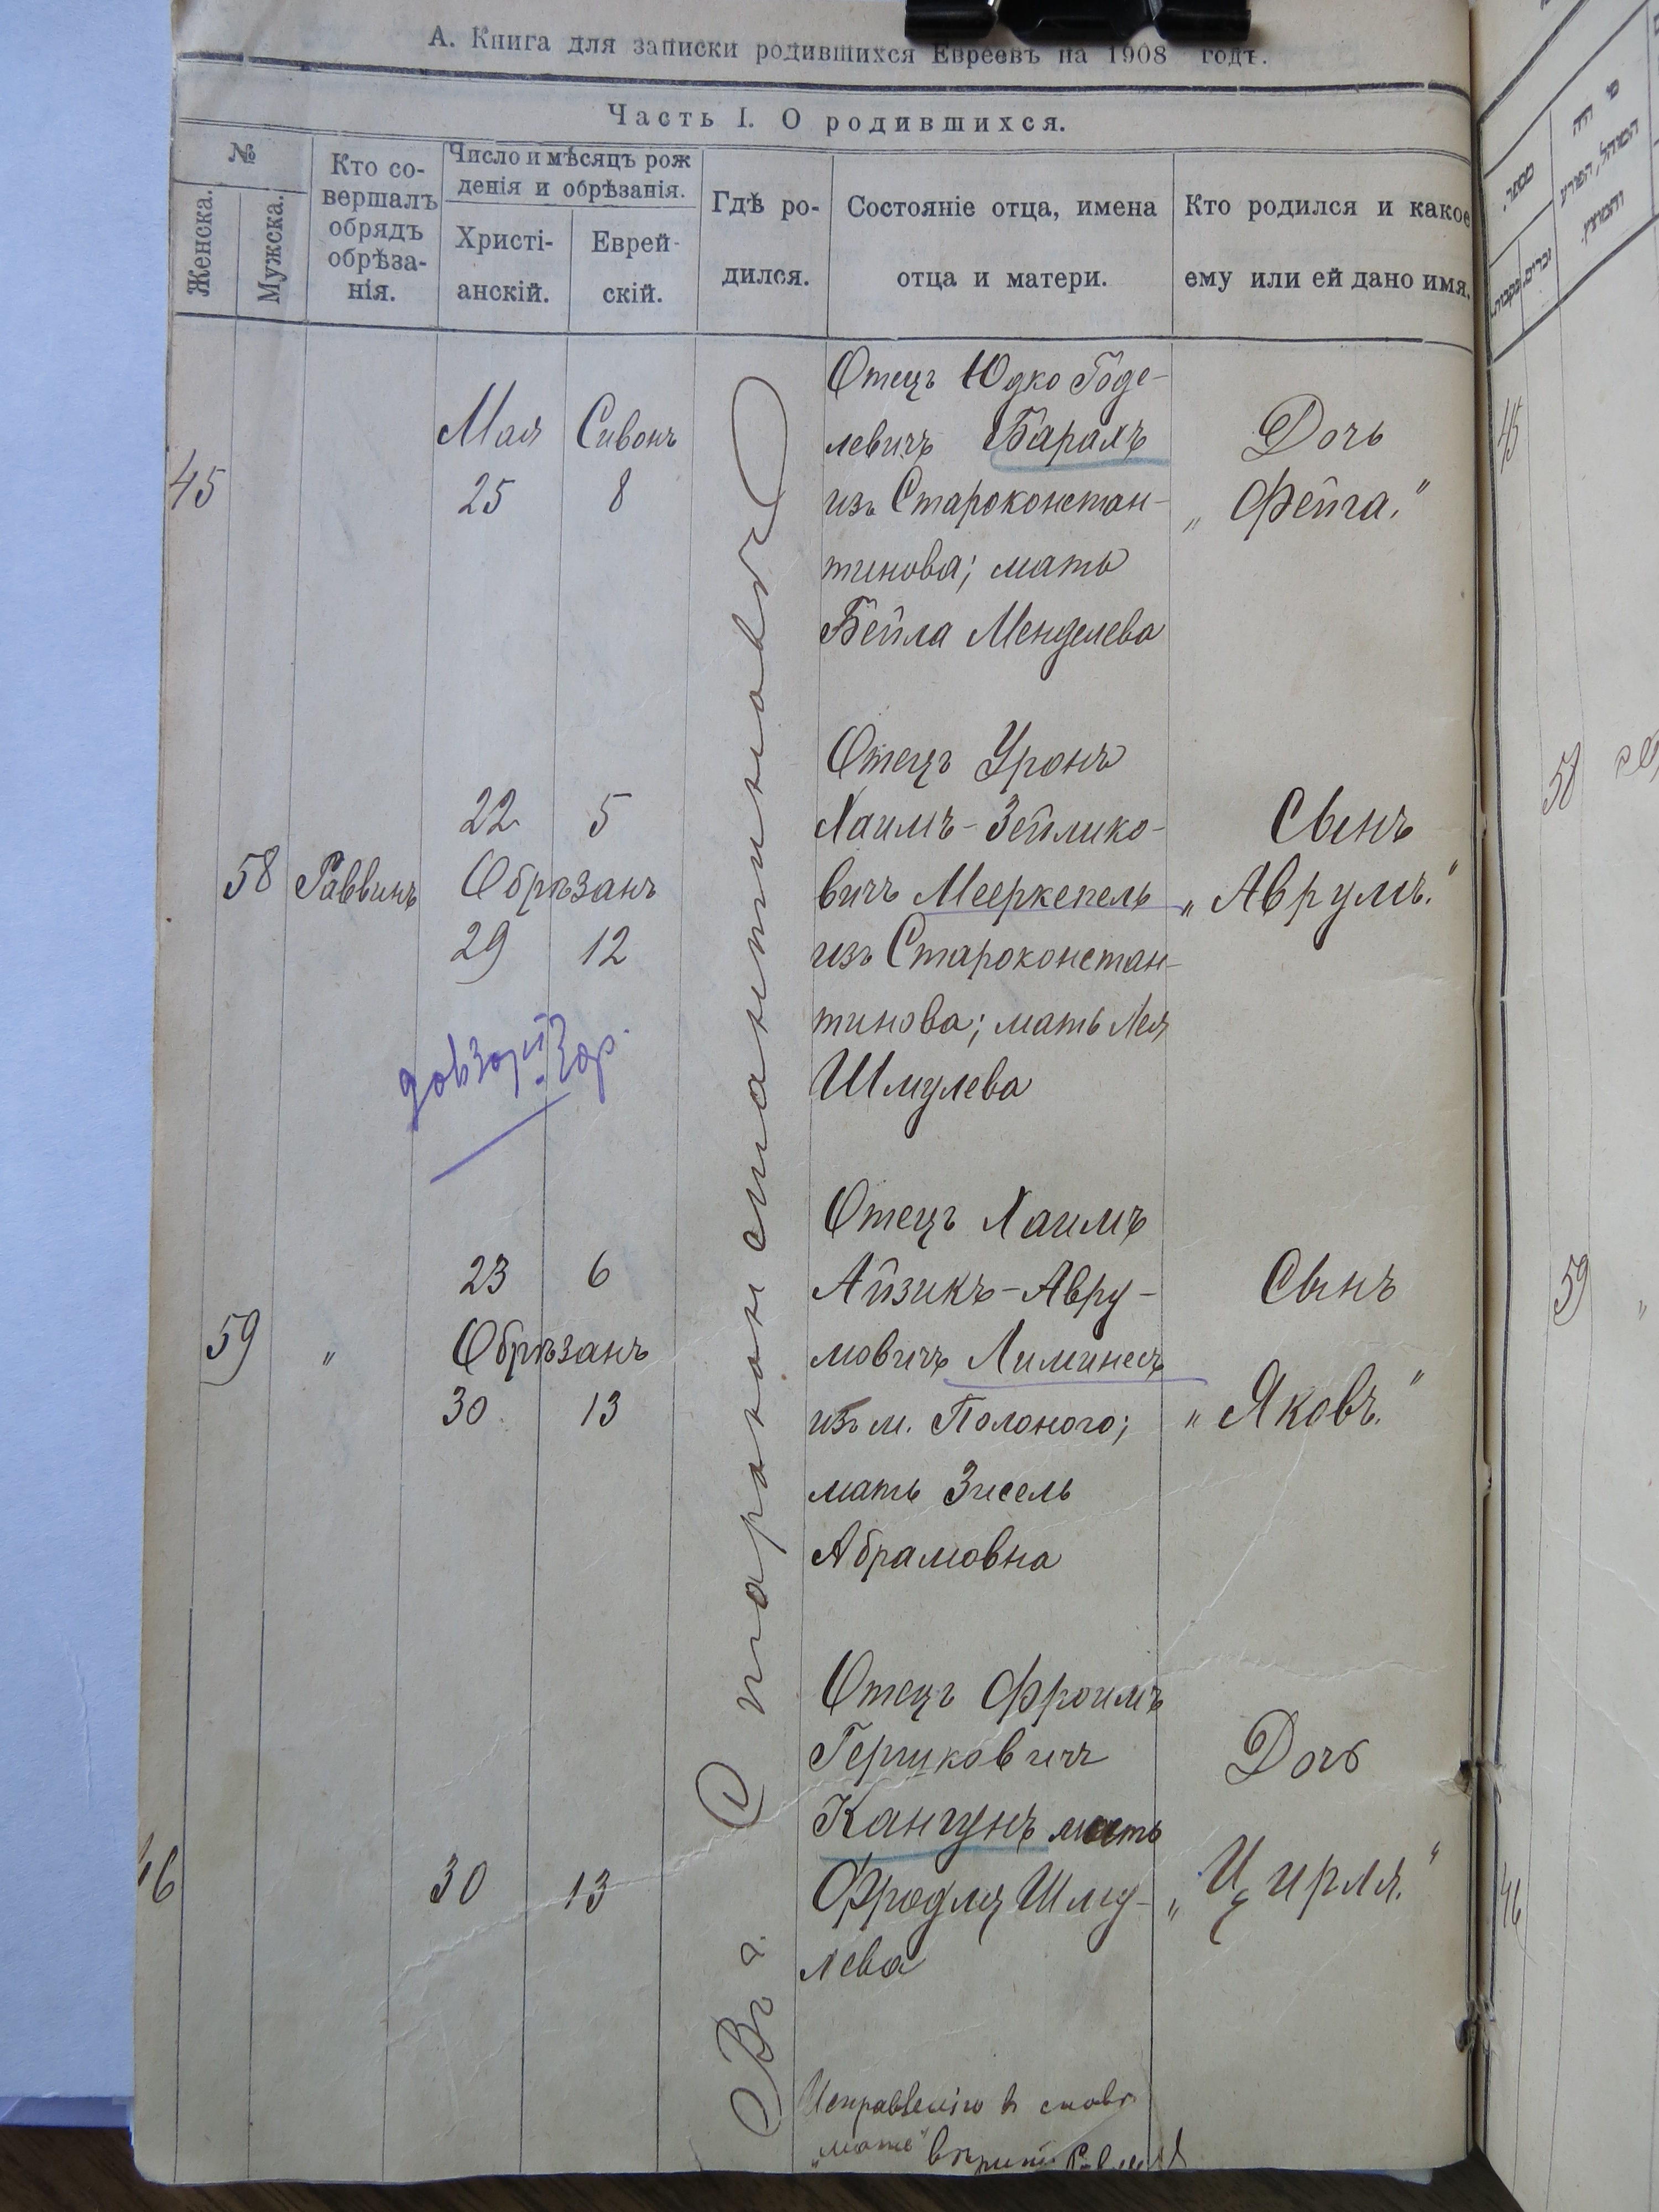 А. Книга для записки родившихся Евреевъ на 1908 годъ.
Часть I. О родившихся.
№
Женска.
Мужска.
Кто со-
вершалъ
обрядъ
обрѣза-
нія.
Число и мѣсяцъ рож
денія и обрѣзанія.
Христі-
анскій.
Еврей-
скій.
Гдѣ ро-
дился.
Состояніе отца, имена
отца и матери.
Кто родился и какое
ему или ей дано имя.
Въ г. Староконстантиновѣ
45
Мая Сивонъ
25 8
Отецъ Юдко Годе-
левичъ Барахъ
изъ Староконстан-
тинова; мать
Бейла Менделева
Дочь
„Фейга."
58 Раввинъ
22 5
Обрѣзанъ
29 12
Отецъ Уронъ
Хаимъ-Зейлико-
вичъ Мееркепель
изъ Староконстан-
тинова; мать Лея
Шмулева
Сынъ
„Аврумъ."
59 „
23 6
Обрѣзанъ
30 13
Отецъ Хаимъ
Айзикъ-Авру-
мовичъ Лиминесъ
изъ м. Полоного;
мать Зисель
Абрамовна
Сынъ
„Яковъ."
46
30 13
Отецъ Фроимъ
Гершковичъ
Кангунъ мать
Фродля Шму-
лева
Дочь
„Цирля."
„мать"
45
58
59
„
46